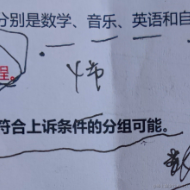 分别是数学、音乐、英语和自
程。
符合上诉条件的分组可能。